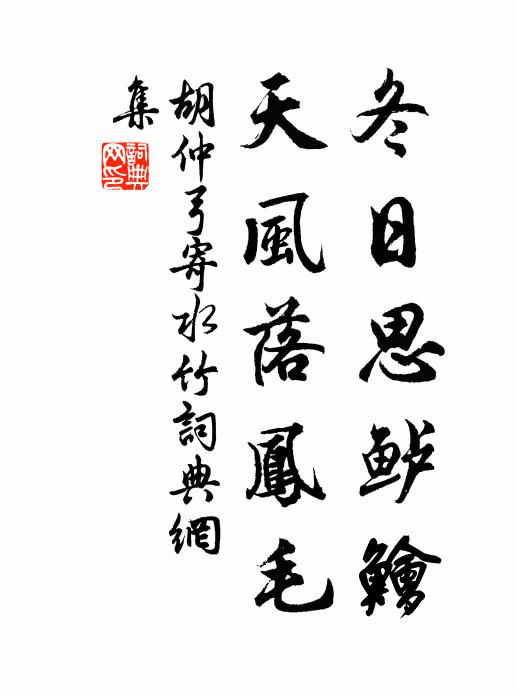 冬日思鲈鱠
天風落鳳毛
胡仲弓寄水竹詞典網
集
詞典网印